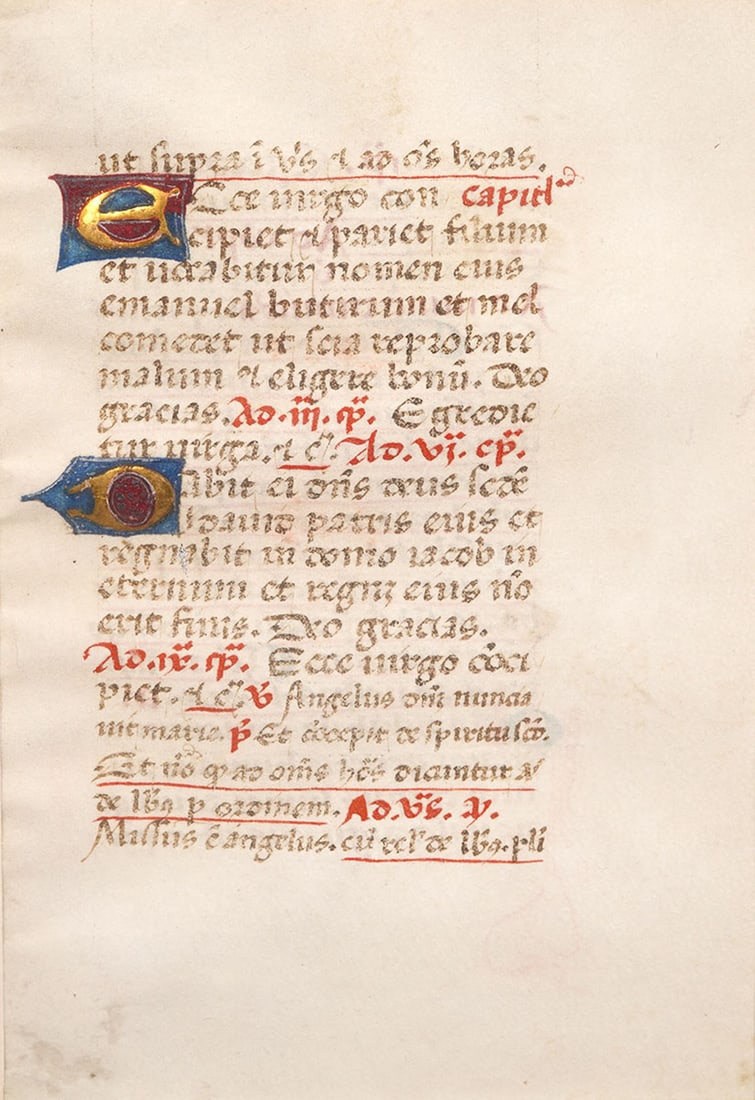 ut supra ī v̄s ⁊ ad oēs horas.
Ecce uirgo con capitl'm
cipiet ⁊ pariet filium
et uocabitur nomen eius
emanuel butirum et mel
comedet ut scia reprobare
malum ⁊ eligere bonū. Deo
gracias. Ad .iij. cp̄. Egredie
tur uirga. ⁊ c̄. Ad. vj. cp̄.
Dabit ei dn̄s deus sedē
dauid patris eius et
regnabit in domo iacob in
eternum et regnj eius nō
erit finis. Deo gracias.
Ad .ix. cp̄. Ecce uirgo cōci
piet. ⁊ c̄. v̄ Angelus dn̄i nuncia
uit marie. r̄ Et cōcepit de spiritu scō.
Et ad om̄s dicuntur
de p ordinem. Ad. v̄s. ā.
Missus ē angelus. cū rel' de